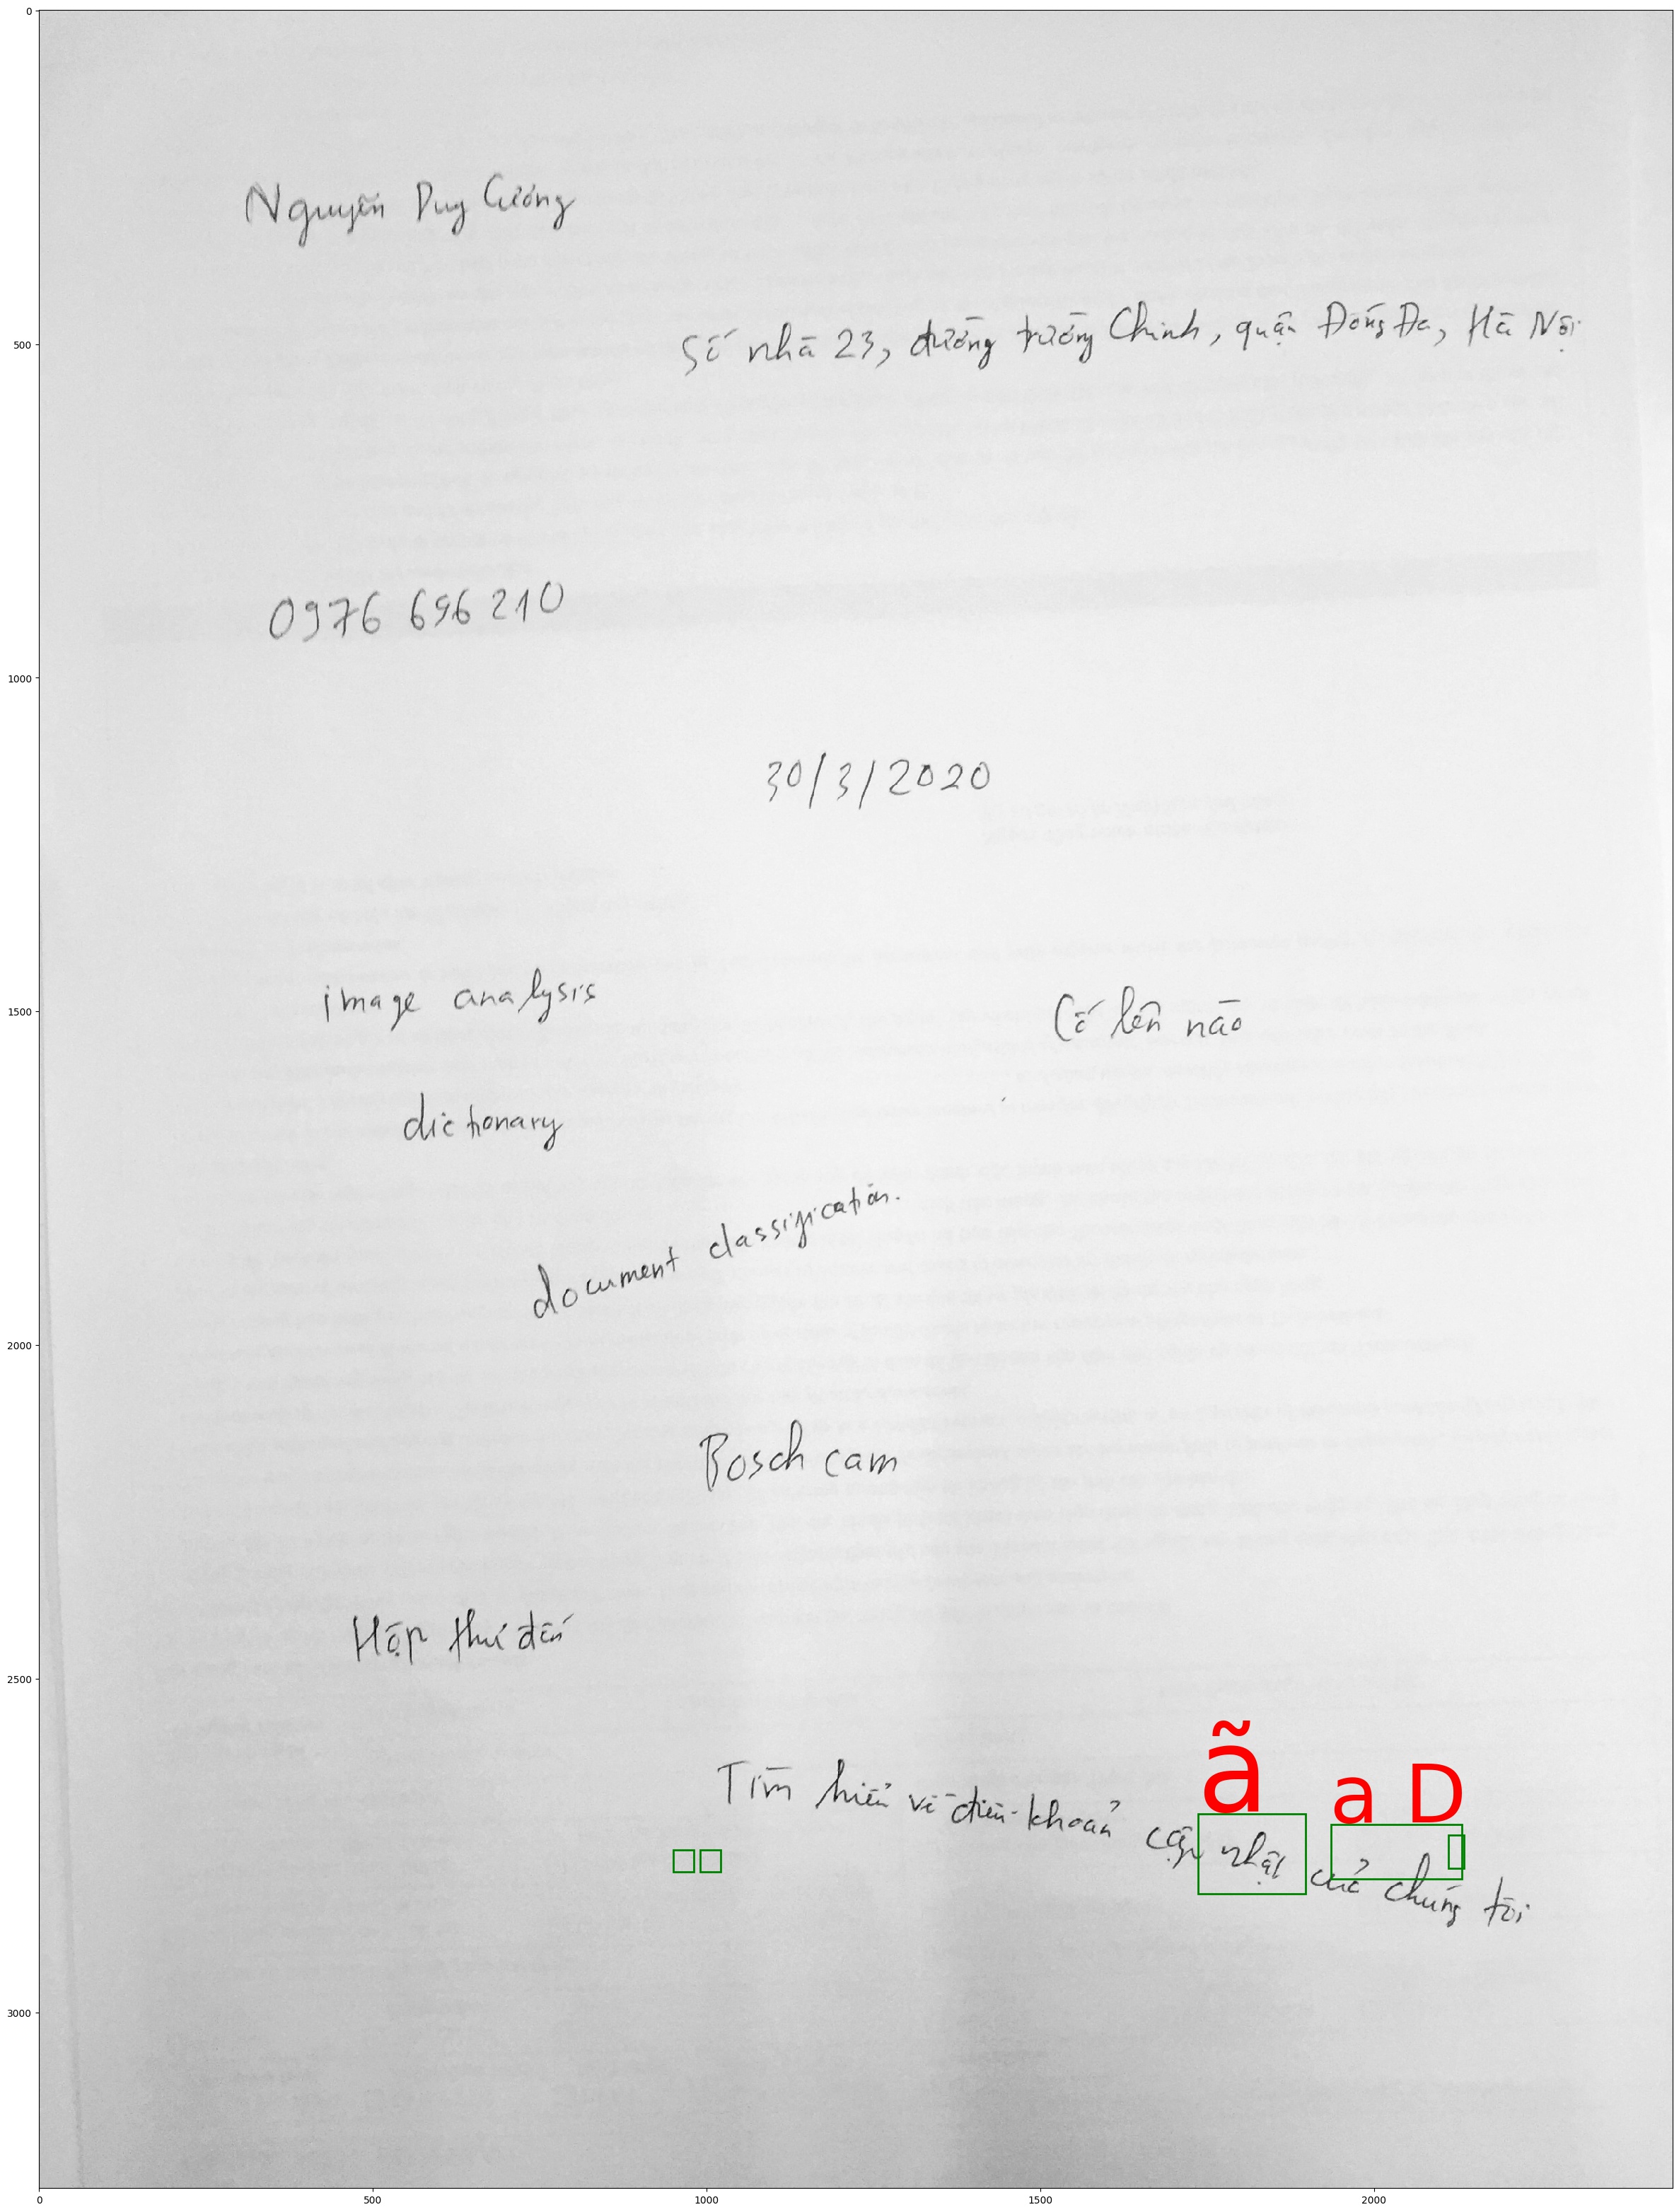 Nguyễn Duy Cường
Số nhà 23, đường trường Chinh, quận Đống Đa, Hà Nội
0976 696 210
30/3/2020
image analysis
Cố lên nào
dictionary
document classification.
Bosch cam
Hộp thư đến
ã
a D
Tìm hiểu về điều khoản cập nhật của chúng tôi